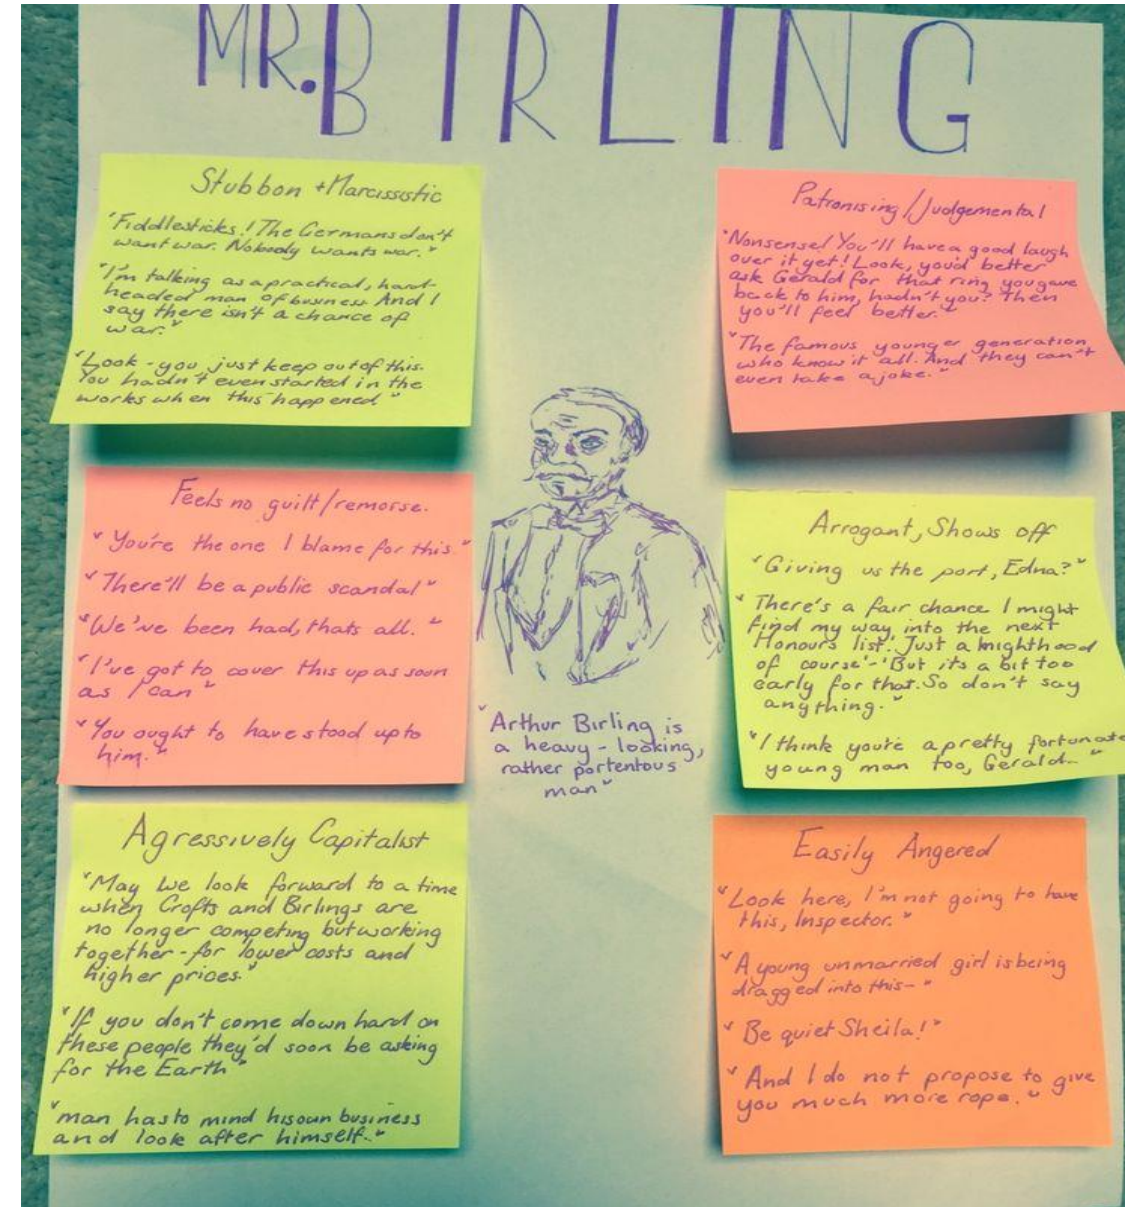 MR. BIRLING
Stubbon + Narcissistic
"Fiddlesticks! The Germans don't
want war. Nobody wants war."
"I'm talking as a practical, hard-
headed man of business. And I
say there isn't a chance of
war."
"Look - you just keep out of this.
You hadn't even started in the
works when this happened"
Feels no guilt/remorse.
"You're the one I blame for this."
"There'll be a public scandal"
"We've been had, thats all."
"I've got to cover this up as soon
as I can"
"You ought to have stood up to
him."
Agressively Capitalist
"May we look forward to a time
when Crofts and Birlings are
no longer competing but working
together - for lower costs and
higher prices."
"If you don't come down hard on
these people they'd soon be asking
for the Earth"
"man has to mind his own business
and look after himself."
"Arthur Birling is
a heavy - looking,
rather portentous
man"
Patronising/Judgemental
"Nonsense! You'll have a good laugh
over it yet! Look, you'd better
ask Gerald for that ring you gave
back to him, hadn't you? Then
you'll feel better."
"The famous younger generation
who know it all. And they can't
even take a joke."
Arrogant, Shows off
"Giving us the port, Edna?"
"There's a fair chance I might
find my way into the next
Honours list. Just a knighthood
of course' - 'But its a bit too
early for that. So don't say
anything."
"I think you're a pretty fortunate
young man too, Gerald-"
Easily Angered
"Look here, I'm not going to have
this, Inspector."
"A young unmarried girl is being
dragged into this-"
"Be quiet Sheila!"
"And I do not propose to give
you much more rope."